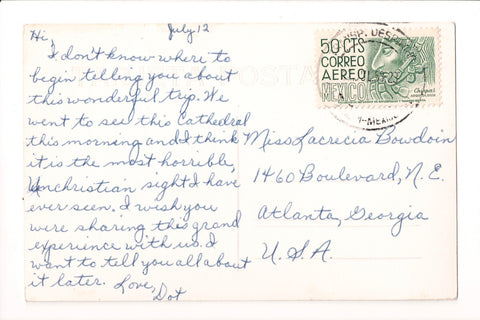 July 12
Hi,
I don't know where to
begin telling you about
this wonderful trip. We
went to see this Cathedral
this morning and I think
it is the most horrible,
Unchristian sight I have
ever seen. I wish you
were sharing this grand
experience with us. I
want to tell you all about
it later. Love,
Dot
Miss Lacrecia Bowdoin
1460 Boulevard, N.E.
Atlanta, Georgia
U.S.A.
50 CTS
CORREO
AEREO
MEXICO
Chiapas